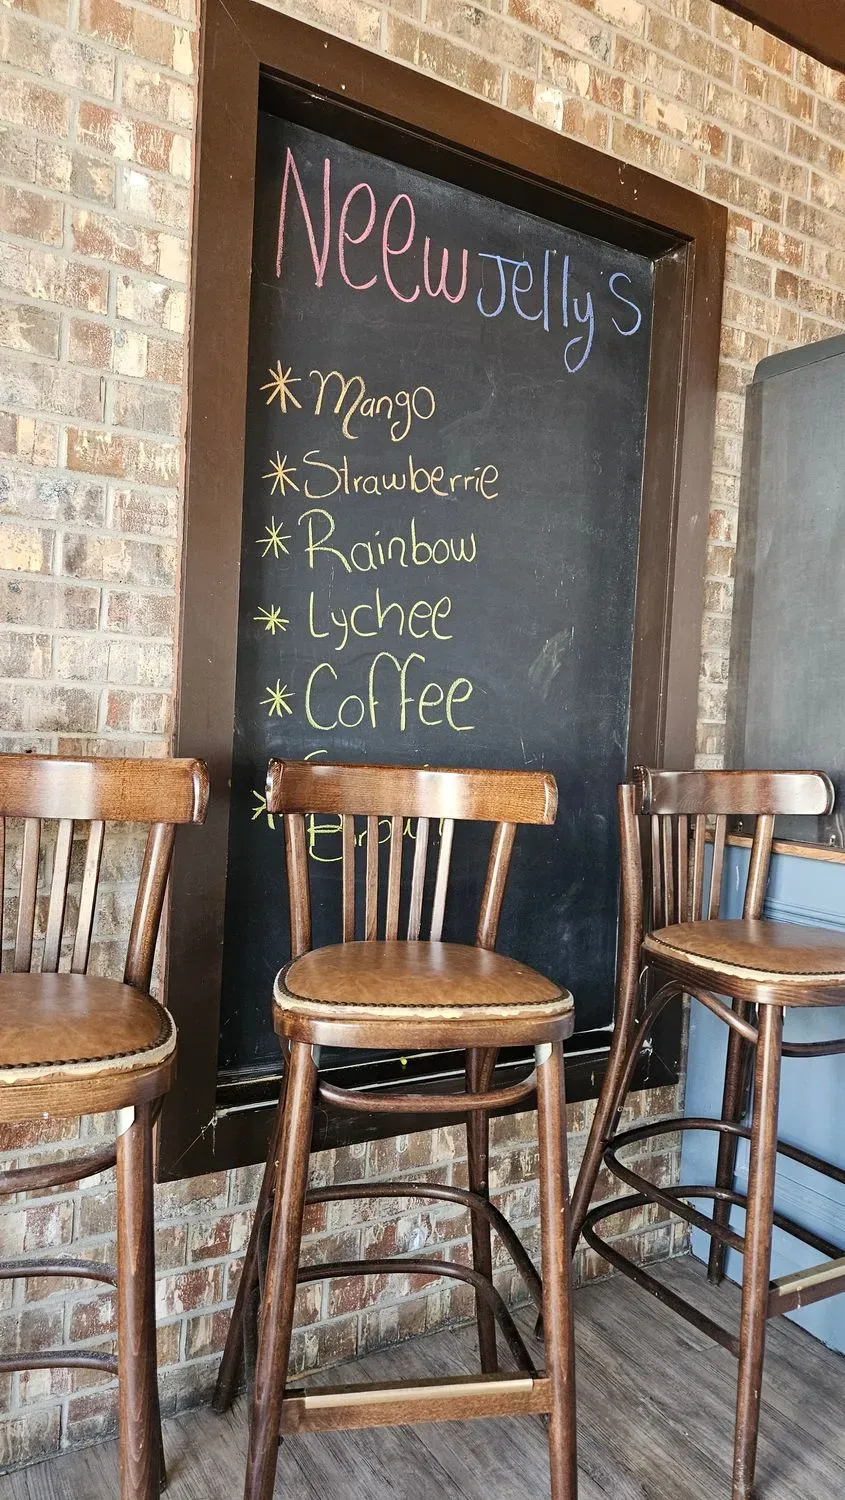 Neew Jelly's
* Mango
* Strawberrie
* Rainbow
* Lychee
* Coffee